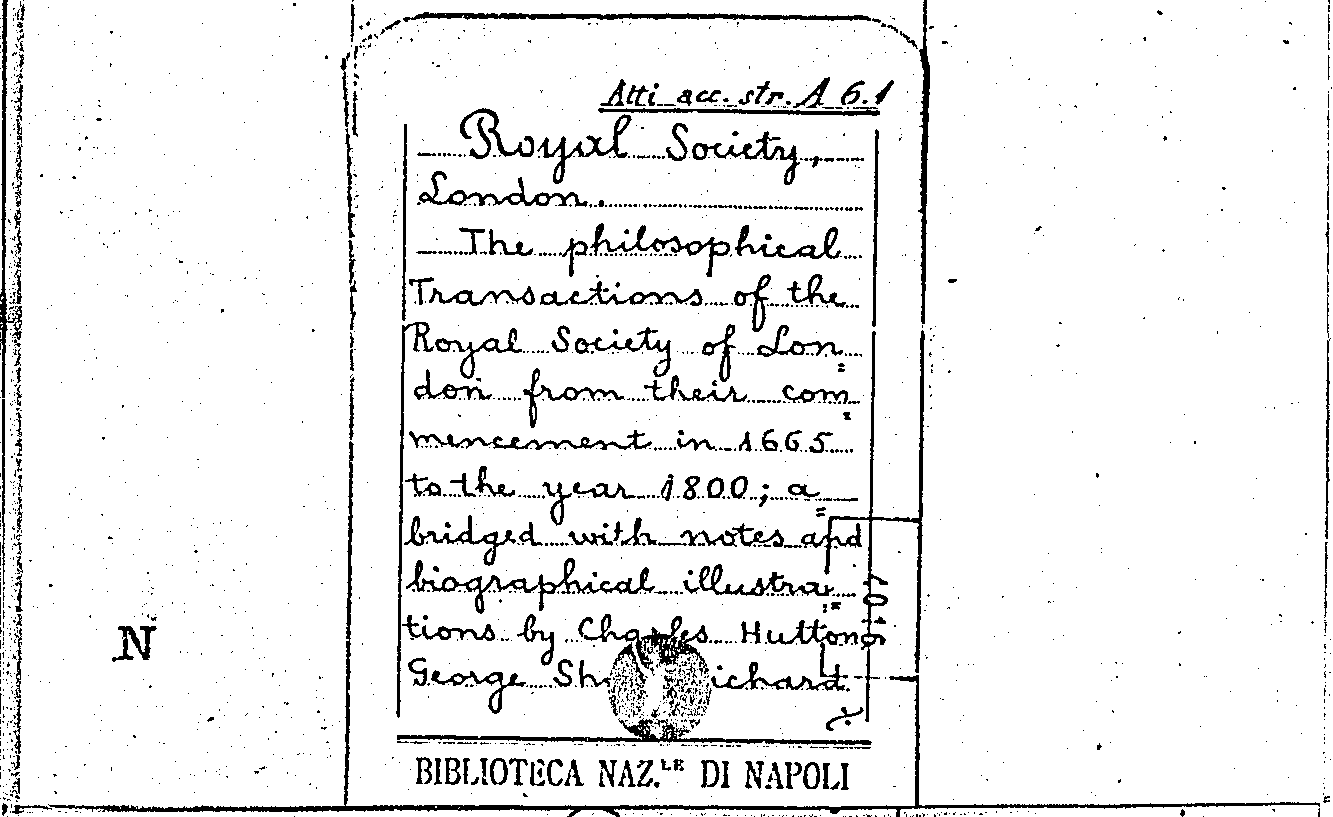 Atti acc. str. A 6.1
Royal Society,
London.
The philosophical
Transactions of the
Royal Society of Lon=
don from their com=
mencement in 1665
to the year 1800; a=
bridged with notes and
biographical illustra=
tions by Charles Hutton,
George ichard
N
BIBLIOTECA NAZ.LE DI NAPOLI